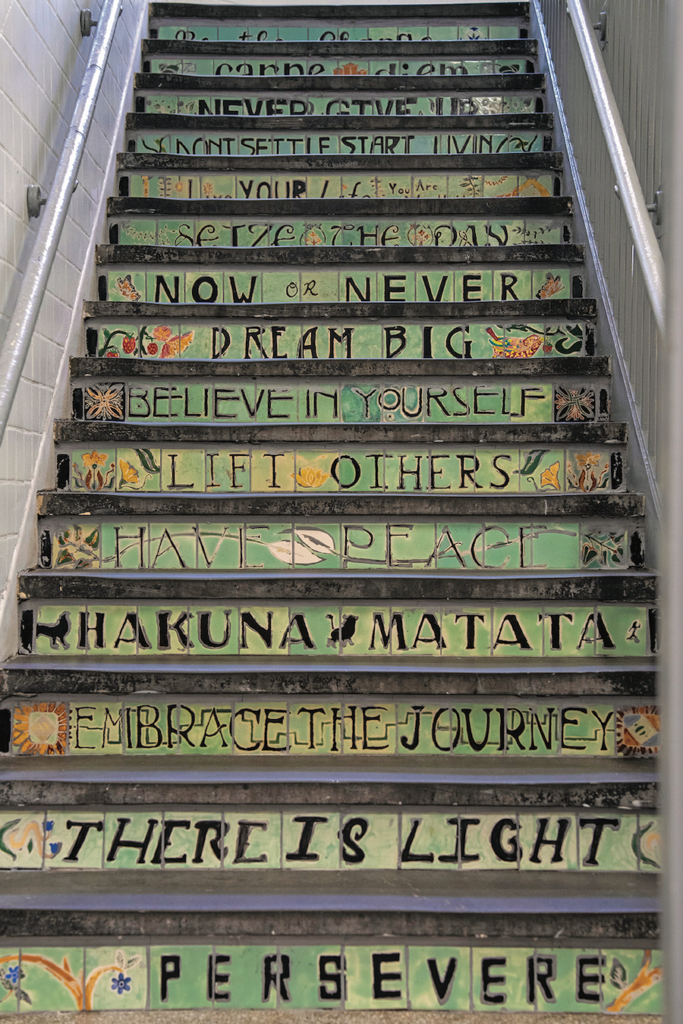 Be the Change
carpe diem
NEVER GIVE UP
DONT SETTLE START LIVING
Live YOUR Life You Are
SEIZE THE DAY
NOW OR NEVER
DREAM BIG
BELIEVE IN YOURSELF
LIFT OTHERS
HAVE PEACE
HAKUNA MATATA
EMBRACE THE JOURNEY
THERE IS LIGHT
PERSEVERE